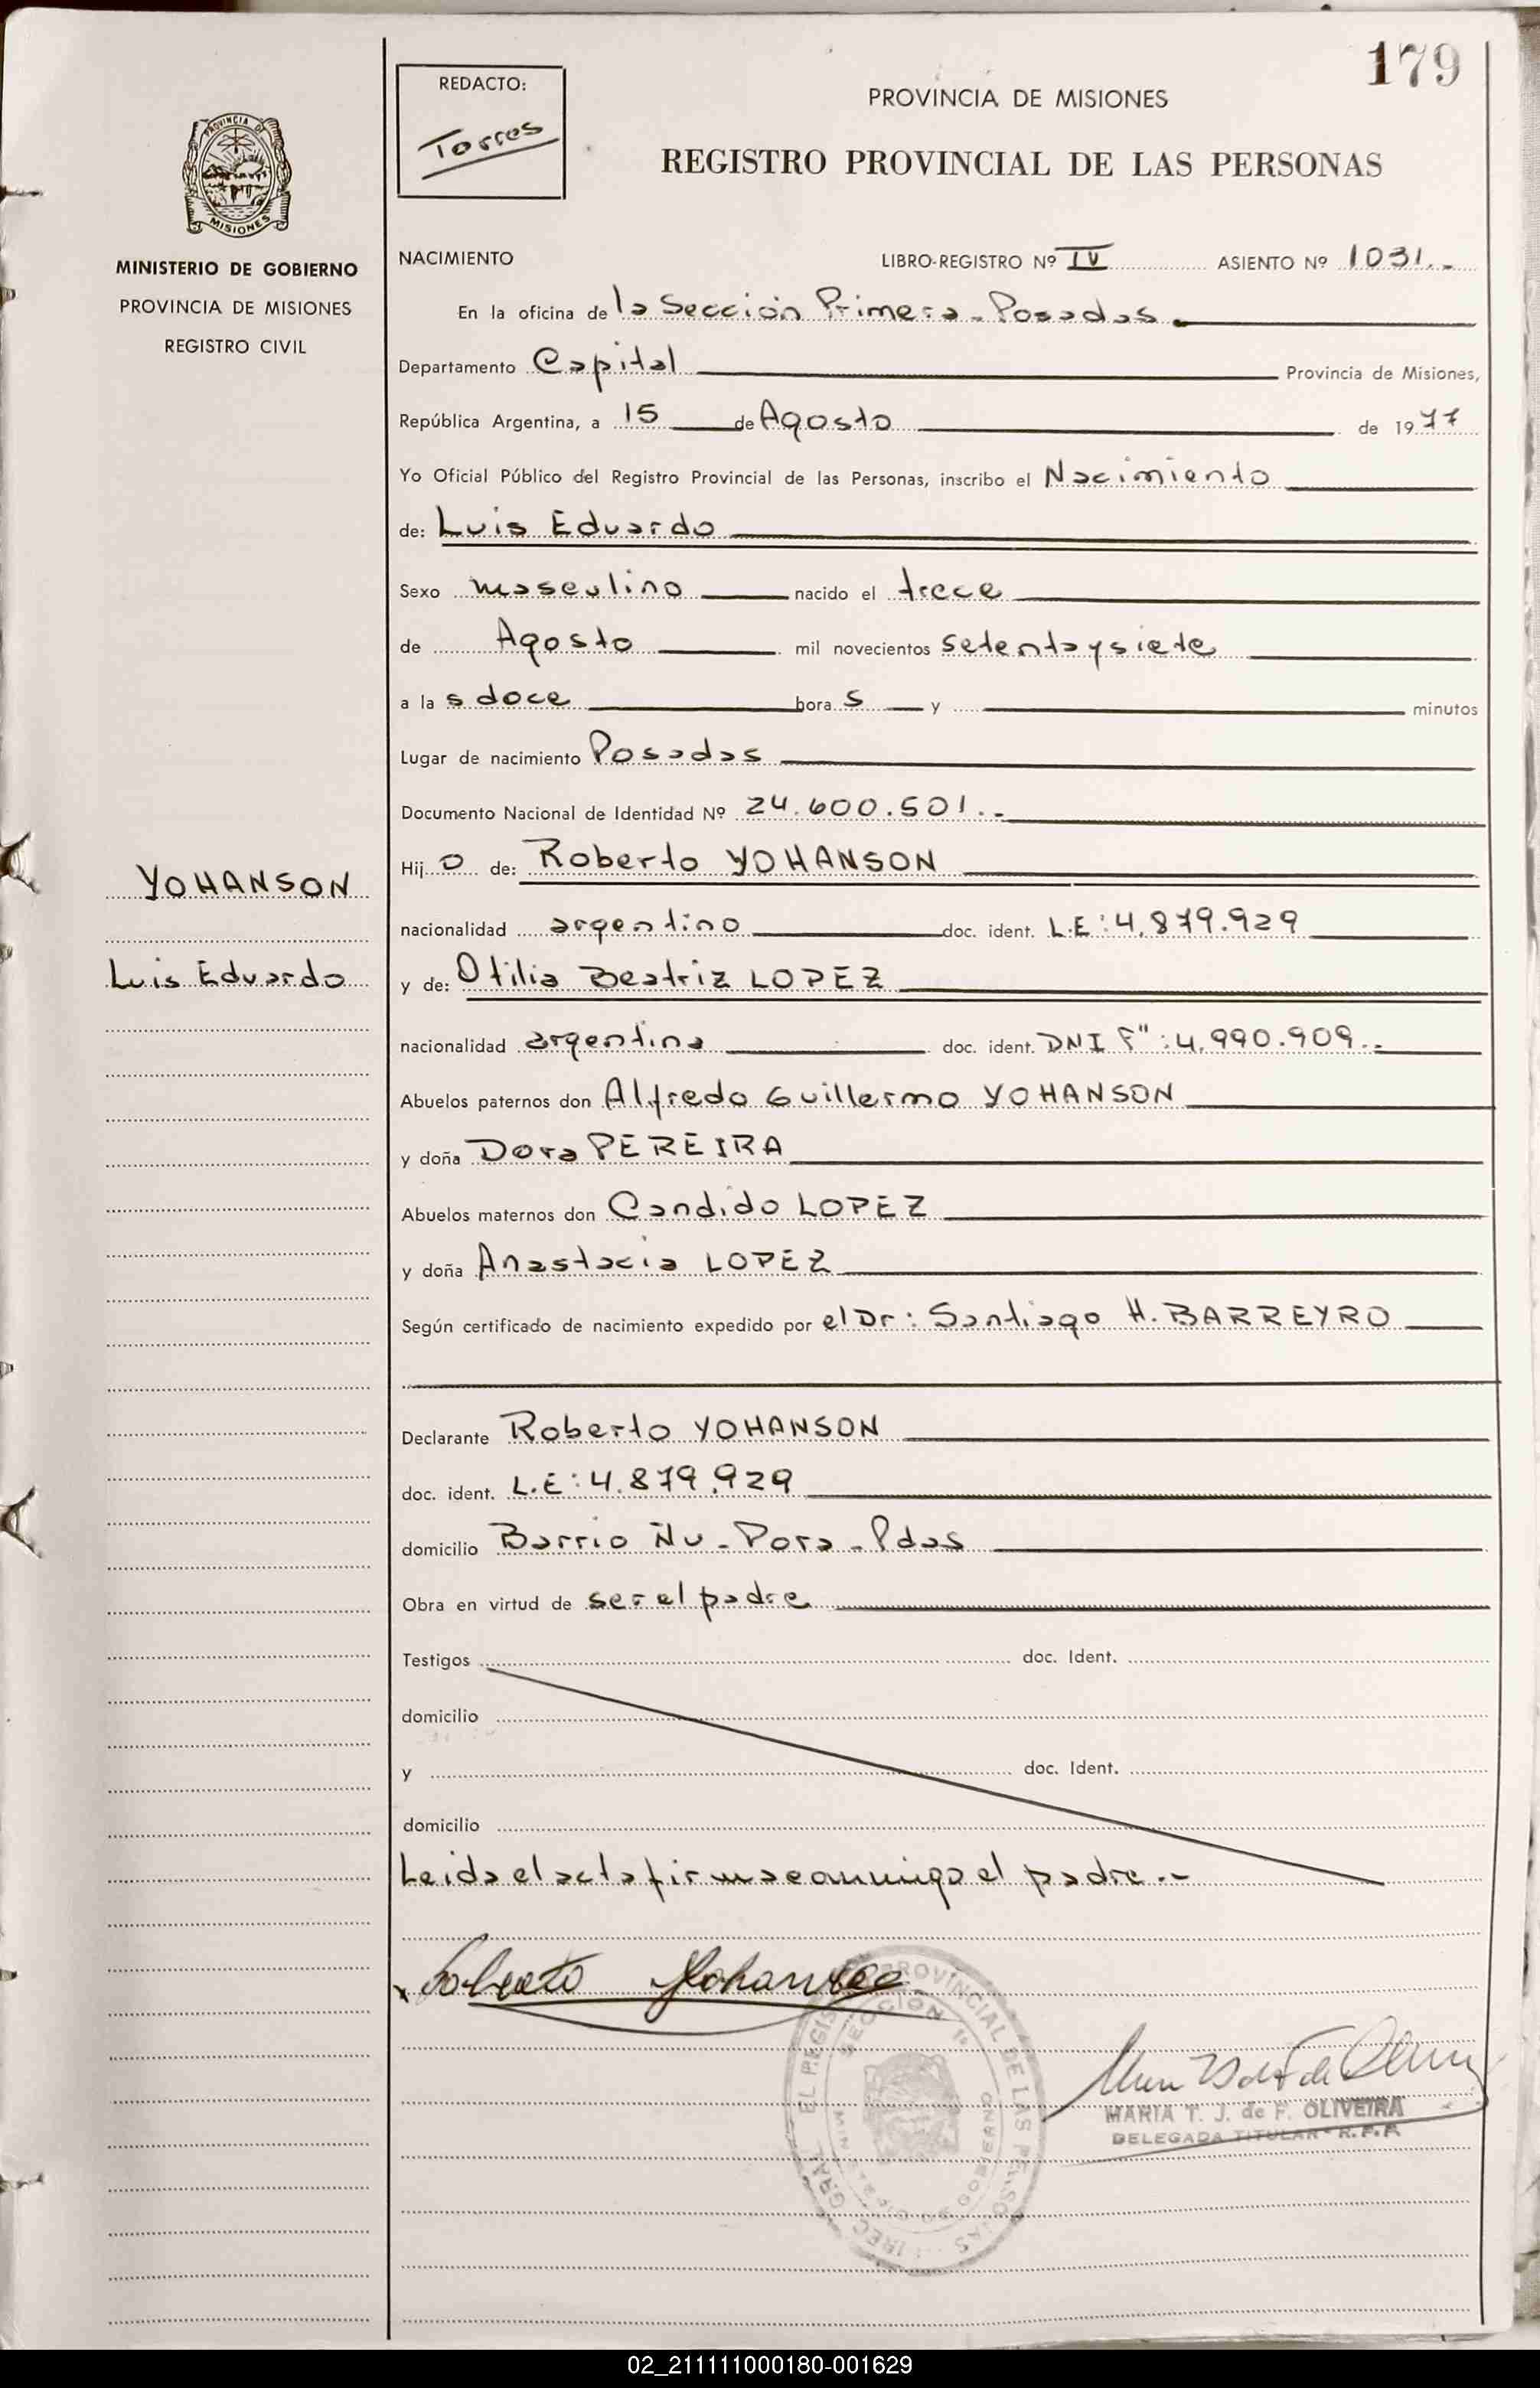 179
REDACTO:
Torres
PROVINCIA DE MISIONES
REGISTRO PROVINCIAL DE LAS PERSONAS
PROVINCIA DE
MISIONES
MINISTERIO DE GOBIERNO
PROVINCIA DE MISIONES
REGISTRO CIVIL
NACIMIENTO LIBRO-REGISTRO Nº IV ASIENTO Nº 1031.-
En la oficina de la Sección Primera - Posadas.
Departamento Capital Provincia de Misiones,
República Argentina, a 15 de Agosto de 1977
Yo Oficial Público del Registro Provincial de las Personas, inscribo el Nacimiento
de: Luis Eduardo
Sexo masculino nacido el trece
de Agosto mil novecientos setenta y siete
a la s doce hora s y minutos
Lugar de nacimiento Posadas
Documento Nacional de Identidad Nº 24.600.501.-
Hij o de: Roberto YOHANSON
YOHANSON
nacionalidad argentino doc. ident. L.E: 4.879.929
Luis Eduardo
y de: Otilia Beatriz LOPEZ
nacionalidad argentina doc. ident. DNI F": 4.990.909.-
Abuelos paternos don Alfredo Guillermo YOHANSON
y doña Dora PEREIRA
Abuelos maternos don Candido LOPEZ
y doña Anastacia LOPEZ
Según certificado de nacimiento expedido por el Dr: Santiago H. BARREYRO
Declarante Roberto YOHANSON
doc. ident. L.E: 4.879.929
domicilio Barrio Ñu - Pora - Pdas
Obra en virtud de ser el padre
Testigos doc. Ident.
domicilio
y doc. Ident.
domicilio
Leida el acta firma conmigo el padre.-
Roberto Yohanson
SECCION 1ª
PROVINCIAL DE LAS PERSONAS
MARIA T. J. de F. OLIVEIRA
DELEGADA TITULAR - R.P.P.
02_211111000180-001629